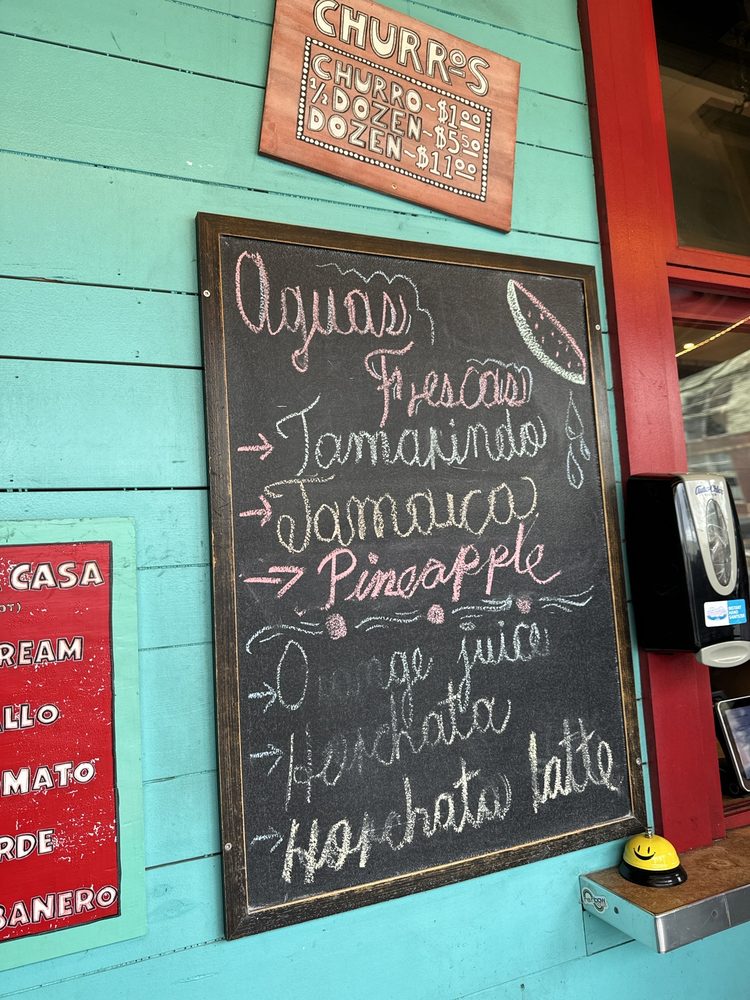 CHURROS
CHURRO~$1.00
1/2 DOZEN~$5.50
DOZEN~$11.00
Aguas
Frescas
→ Tamarindo
→ Jamaica
⇒ Pineapple
→ Orange juice
→ Horchata
→ Horchata latte
CASA
OT)
REAM
LLO
OMATO
RDE
BANERO
INSTANT
HAND
SANITIZER